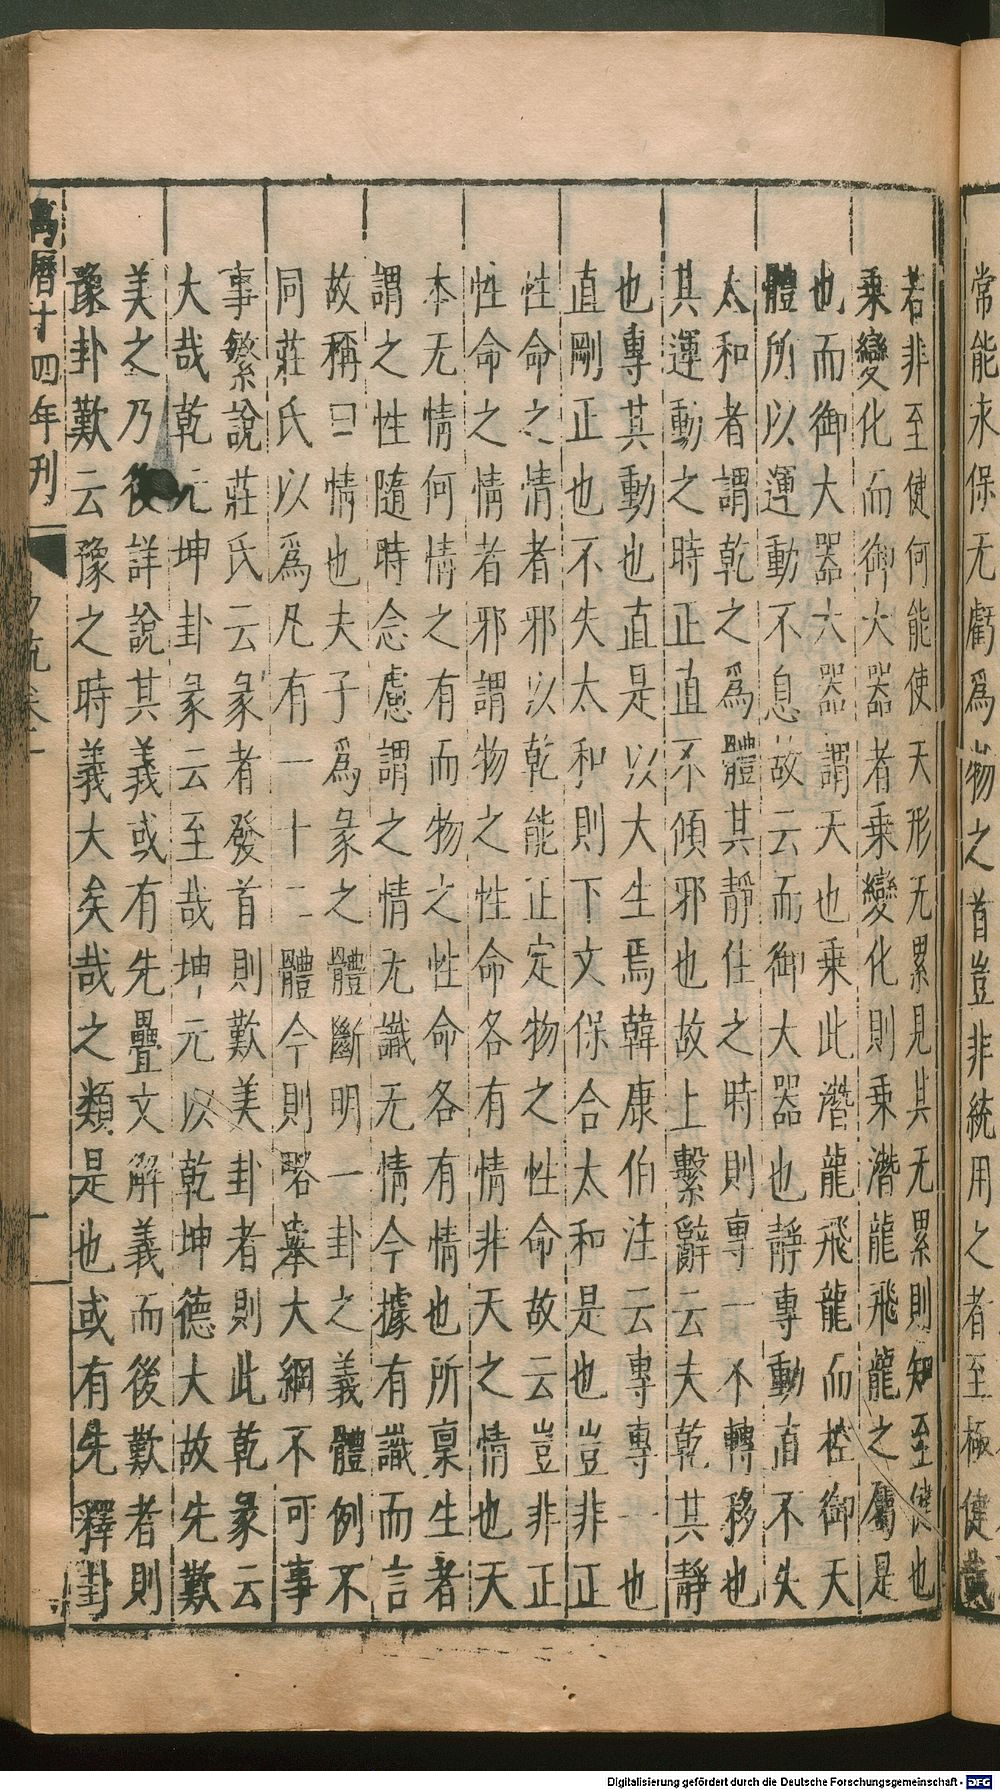 常能永保无虧爲物之首豈非統用之者至極健哉
若非至健何能使天形无累見其无累則知至健也
乗變化而御大噐者乗變化則乗潛龍飛龍之屬是
也而御大噐大噐謂天也乗此潛龍飛龍而控御天
體所以運動不息故云而御大噐也靜專動直不失
太和者謂乾之爲體其靜住之時則專一不轉移也
其運動之時正直不傾邪也故上繫辭云夫乾其靜
也專其動也直是以大生焉韓康伯注云專專一也
直剛正也不失太和則下文保合太和是也豈非正
性命之情者邪以乾能正定物之性命故云豈非正
性命之情者邪謂物之性命各有情非天之情也天
本无情何情之有而物之性命各有情也所禀生者
謂之性隨時念慮謂之情无識无情今據有識而言
故稱曰情也夫子爲彖之體斷明一卦之義體例不
同莊氏以爲凡有一十二體今則畧舉大綱不可事
事繁說莊氏云彖者發首則歎美卦者則此乾彖云
大哉乾元坤卦彖云至哉坤元以乾坤德大故先歎
美之乃後詳說其義或有先疊文解義而後歎者則
豫卦歎云豫之時義大矣哉之類是也或有先釋卦
萬曆十四年刊
Digitalisierung gefördert durch die Deutsche Forschungsgemeinschaft - DFG